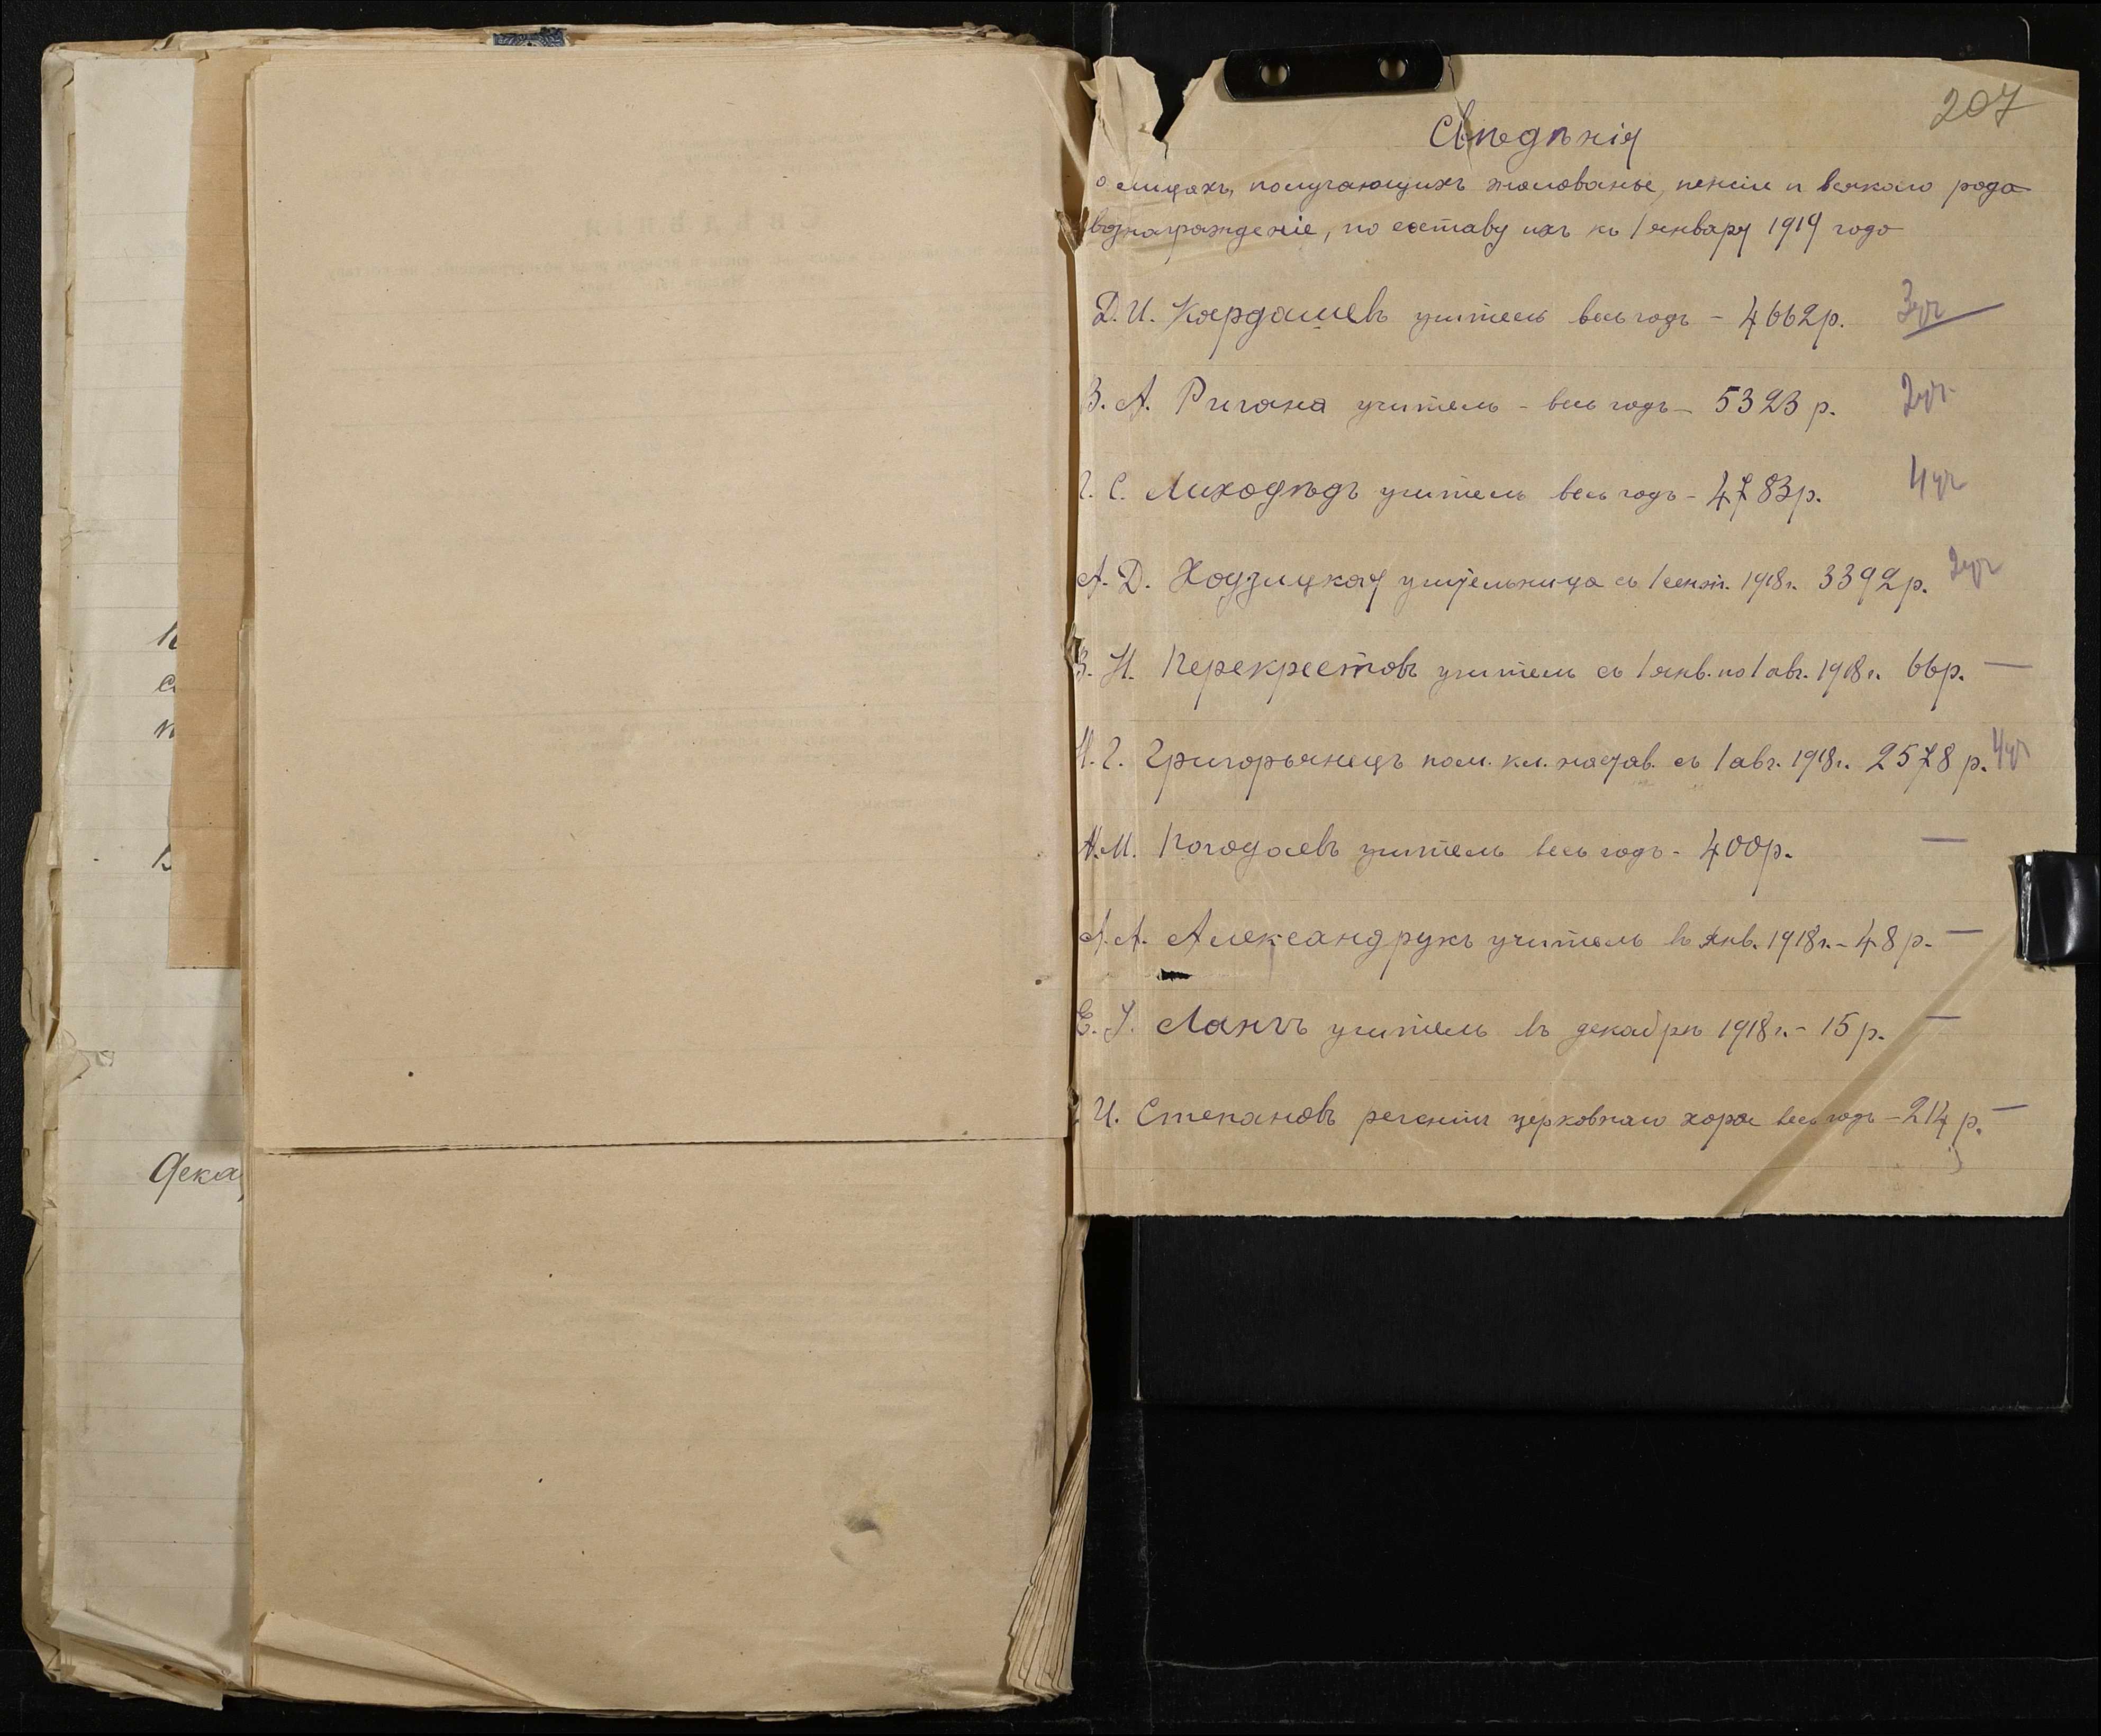 207
Свѣдѣнія
о лицахъ, получающихъ жалованье, пенсіи и всякаго рода
вознагражденіе, по составу ихъ къ 1 января 1919 года
Д. И. Кардашевъ учитель весь годъ - 4662 р. 3 уч
В. А. Ригана учитель - весь годъ - 5323 р. 2 уч.
Г. С. Лиходѣдъ учитель весь годъ - 4783 р. 4 уч
А. Д. Ходзицкая учительница съ 1 сент. 1918 г. 3392 р. 2 уч
В. Н. Перекрестовъ учитель съ 1 янв. по 1 авг. 1918 г. 66 р. —
Н. Г. Григорьянецъ пом. кл. настав. съ 1 авг. 1918 г. 2578 р. 4 уч
Н. М. Погодаевъ учитель весь годъ - 400 р. —
А. А. Александрукъ учитель въ янв. 1918 г. - 48 р. —
Е. Лангъ учитель въ декабрѣ 1918 г. - 15 р. —
И. Степановъ регентъ церковнаго хора весь годъ - 214 р. —
Дека